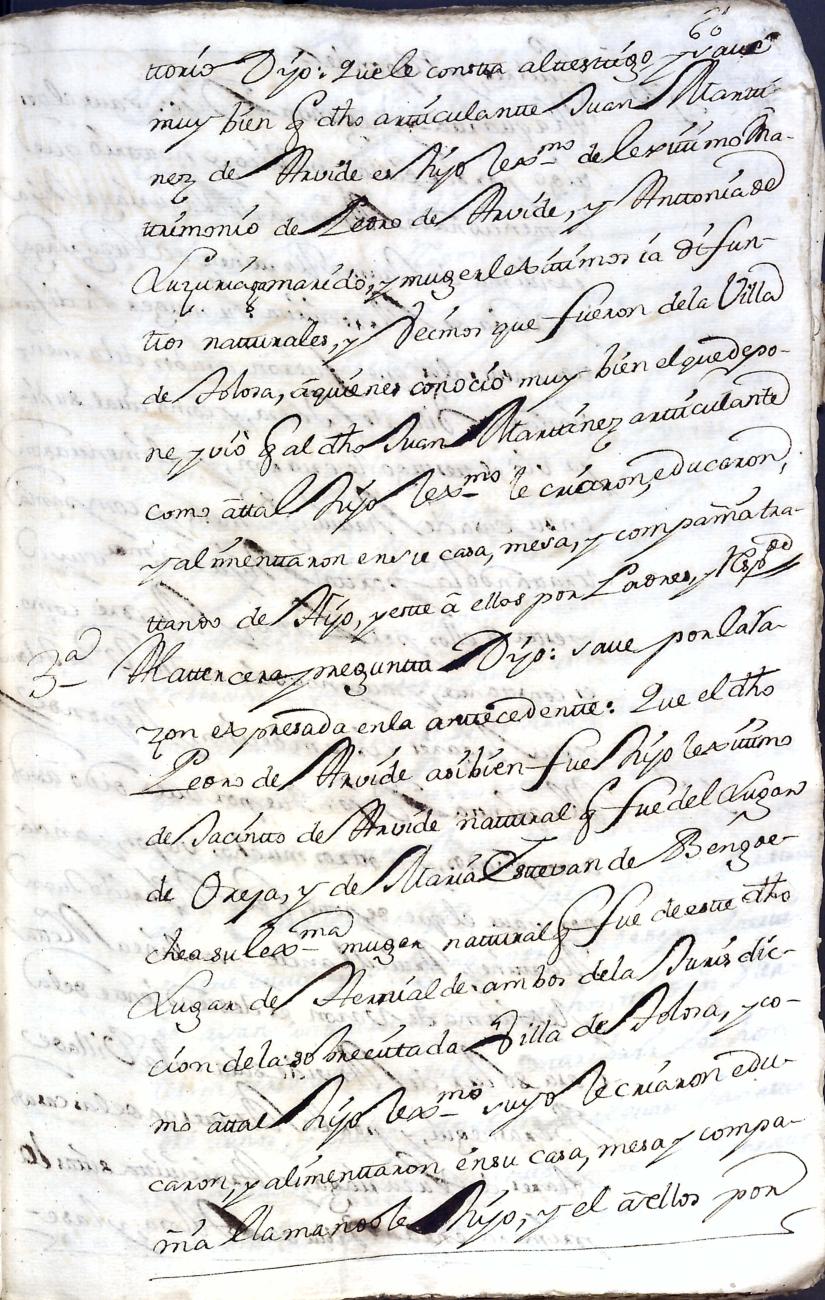 60
ttorio Dijo: Que le consta al testigo y save
muy bien q dho articulante Juan Martti
nez de Arvide es hijo lexmo de lexitimo Ma-
trimonio de Pedro de Arvide, y Anttonia de
Luzuriaga marido, y muger lexittimos ia difun-
ttos natturales, y vecinos que fueron de la Villa
de Tolosa, a quienes conocio muy bien el que depo-
ne, y vio q al dho Juan Marttinez artticulante
como a ttal hijo lexmo le criaron, educaron,
y alimenttaron en su casa, mesa, y compañia tra-
ttando de Hijo, y este a ellos por Padres, y Respde
3a
A la ttercera pregunta Dijo: save por la ra-
zon expresada en la anttecedente: Que el dho
Pedro de Arvide asi bien fue hijo lexittimo
de Jacintto de Arvide nattural q fue del Lugar
de Oreja, y de Maria Estevan de Bengoe-
chea su lexma muger nattural q fue de este dho
Lugar de Hernialde ambos de la Jurisdic-
cion de la sobrecittada Villa de Tolosa, y co-
mo a ttal hijo lexmo suyo le criaron edu-
caron, y alimenttaron en su casa, mesa y compa-
ñia llamandole Hijo, y el a ellos por